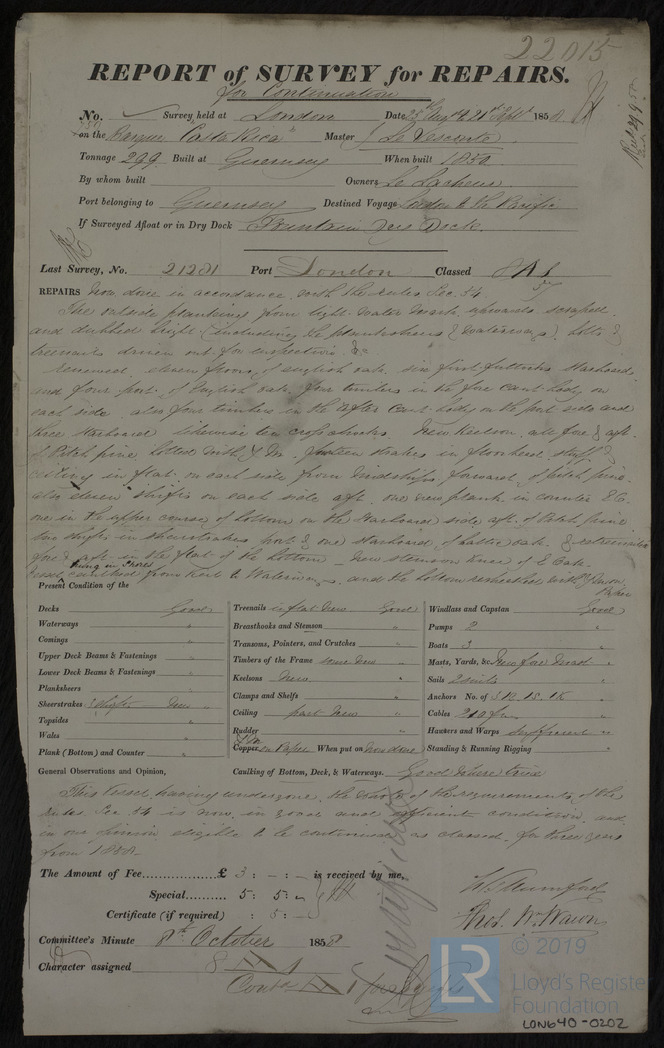 22015
REPORT of SURVEY for REPAIRS.
for Continuation
No. Survey held at London Date 1858
on the Barque "Costa Rica" Master Le Vesconte
Tonnage 299 Built at Guernsey When built 1850
By whom built Owners Le Lacheur
Port belonging to Guernsey Destined Voyage London to the Pacific
If Surveyed Afloat or in Dry Dock Fountain Dry Dock.
Last Survey, No. 21281 Port London Classed
REPAIRS Now done in accordance with the rules Sec. 54.
The outside planking from light water mark upwards scraped
and dubbed bright (including the plansheers & waterways) bolts &
treenails driven out for inspection &c
Renewed eleven floors of english oak six first futtocks Starboard
and four port of English oak four timbers in the fore cant body on
each side also four timbers in the after cant body on the port side and
three starboard likewise ten New Keelson all fore & aft
of Pitch pine bolted with Y M. strakes in floorhead stuff &
ceiling in flat on each side from midships forward of pitch pine
also eleven shifts on each side aft. one new plank in counter E O.
one in the upper course of bottom on the Starboard side aft of Pitch pine
two shifts in sheerstrakes port & one Starboard of Baltic oak &
fore & aft in the flat of the bottom New stemson knee of E Oak
Vessel caulked from Keel to Waterways, and the bottom with Y M on
Paper
Present Condition of the
Decks Good Treenails in flat New Good Windlass and Capstan Good
Waterways " Breasthooks and Stemson " Pumps 2 "
Comings " Transoms, Pointers, and Crutches " Boats 3 "
Upper Deck Beams & Fastenings " Timbers of the Frame some New " Masts, Yards, &c. New fore Mast "
Lower Deck Beams & Fastenings " Keelsons New " Sails 2 suits "
Planksheers Clamps and Shelfs " Anchors No. of "
Sheerstrakes 3 shifts New " Ceiling part New " Cables 210 fm "
Topsides " Rudder " Hawsers and Warps sufficient "
Wales " Copper on Paper When put on now done Standing & Running Rigging "
Plank (Bottom) and Counter " Caulking of Bottom, Deck, & Waterways. Good where tried
General Observations and Opinion,
This Vessel having undergone the whole of the requirements of the
Rules Sec. 54 is now in good and efficient condition and
in our opinion eligible to be continued as classed for three years
from 1858
The Amount of Fee £ 3 : - : - is received by me,
Special 5 : 5 : -
Certificate (if required) : 5 : -
Thos. Wm Wawn
Committee's Minute 8th October 1858
Character assigned 8 A 1
© 2019
LR
Lloyd's Register
Foundation
LON640-0202